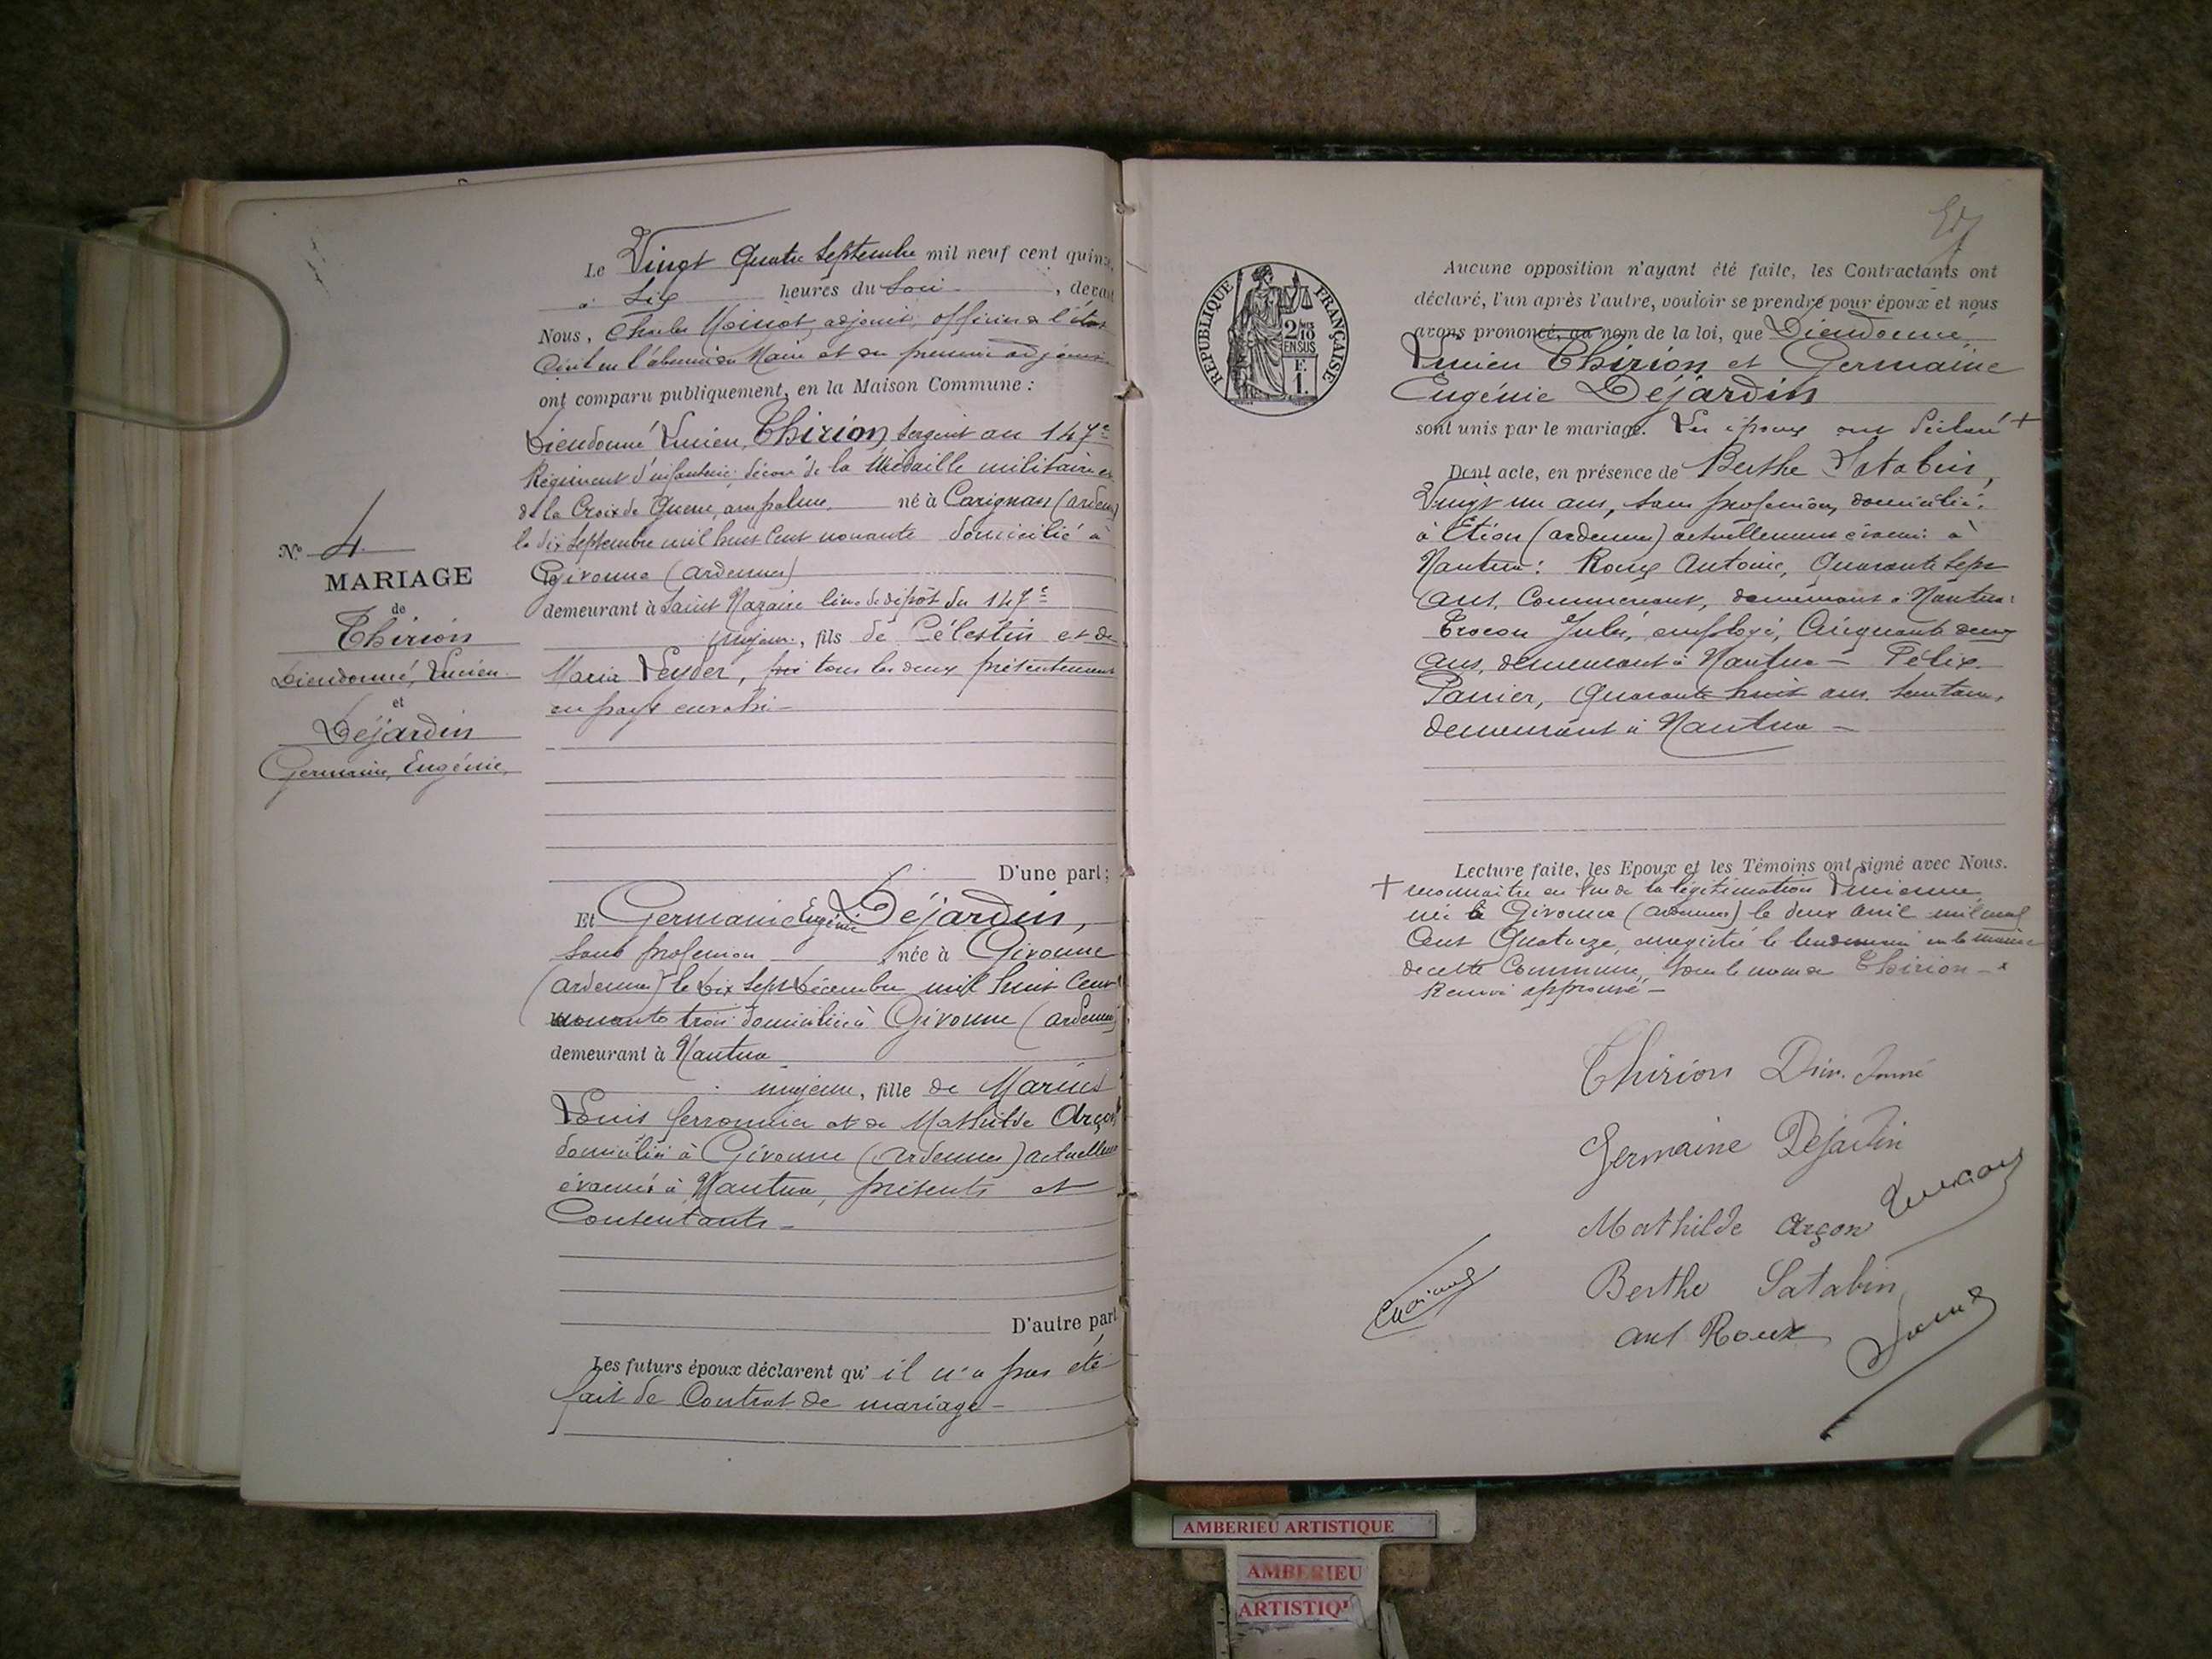 Le Vingt Quatre Septembre mil neuf cent quinze,
à Six heures du Soir, devant
Nous, Charles Moinot, adjoint, officier de l'état
Civil en l'absence du Maire et du premier adjoint
ont comparu publiquement, en la Maison Commune :
Dieudonné Lucien Thirion, Sergent au 147e
Régiment d'infanterie, décoré de la Médaille militaire et
de la Croix de Guerre, avec palme, né à Carignan (Ardennes)
le dix Septembre mil huit Cent nonante domicilié à
Givonne (Ardennes)
demeurant à Saint Nazaire lieu de dépôt du 147e
majeur, fils de Célestin et de
Maria Leyder, tous les deux présentement
en pays envahi -
D'une part ;
Et Germaine Eugénie Déjardin,
Sans profession née à Givonne
(Ardennes) le Dix Sept Décembre mil huit Cent
nonante trois domiciliée à Givonne (Ardennes)
demeurant à Nantua
majeure, fille de Marius
Louis ferronnier et de Mathilde Arçon
domiciliés à Givonne (Ardennes) actuellement
évacués à Nantua, présents et
Consentants -
D'autre part
Les futurs époux déclarent qu'il n'a pas été
fait de Contrat de mariage -
N° 4
MARIAGE
de
Thirion
Dieudonné, Lucien
et
Déjardin
Germaine, Eugénie
RÉPUBLIQUE FRANÇAISE
2/10
EN SUS
F.
1.
Aucune opposition n'ayant été faite, les Contractants ont
déclaré, l'un après l'autre, vouloir se prendre pour époux et nous
avons prononcé, au nom de la loi, que Dieudonné,
Lucien Thirion et Germaine
Eugénie Déjardin
sont unis par le mariage. Les époux ont déclaré +
Dont acte, en présence de Berthe Satabin,
Vingt un ans, sans profession, domiciliée
à Etion (Ardennes) actuellement évacuée à
Nantua : Roux Antoine, Quarante Sept
ans, Commerçant, demeurant à Nantua :
Jules, employé, Cinquante deux
ans, demeurant à Nantua - Félix
Panier, Quarante huit ans,
demeurant à Nantua -
Lecture faite, les Epoux et les Témoins ont signé avec Nous.
+ reconnaître en vue de la légitimation Lucienne
née à Givonne (Ardennes) le deux Avril mil neuf
Cent Quatorze, enregistrée le lendemain en la mairie
de cette Commune, sous le nom de Thirion -
Renvoi approuvé -
Thirion Dieudonné
Germaine Dejardin
Mathilde Arçon
Berthe Satabin
Ant Roux
AMBERIEU ARTISTIQUE
AMBERIEU
ARTISTIQU